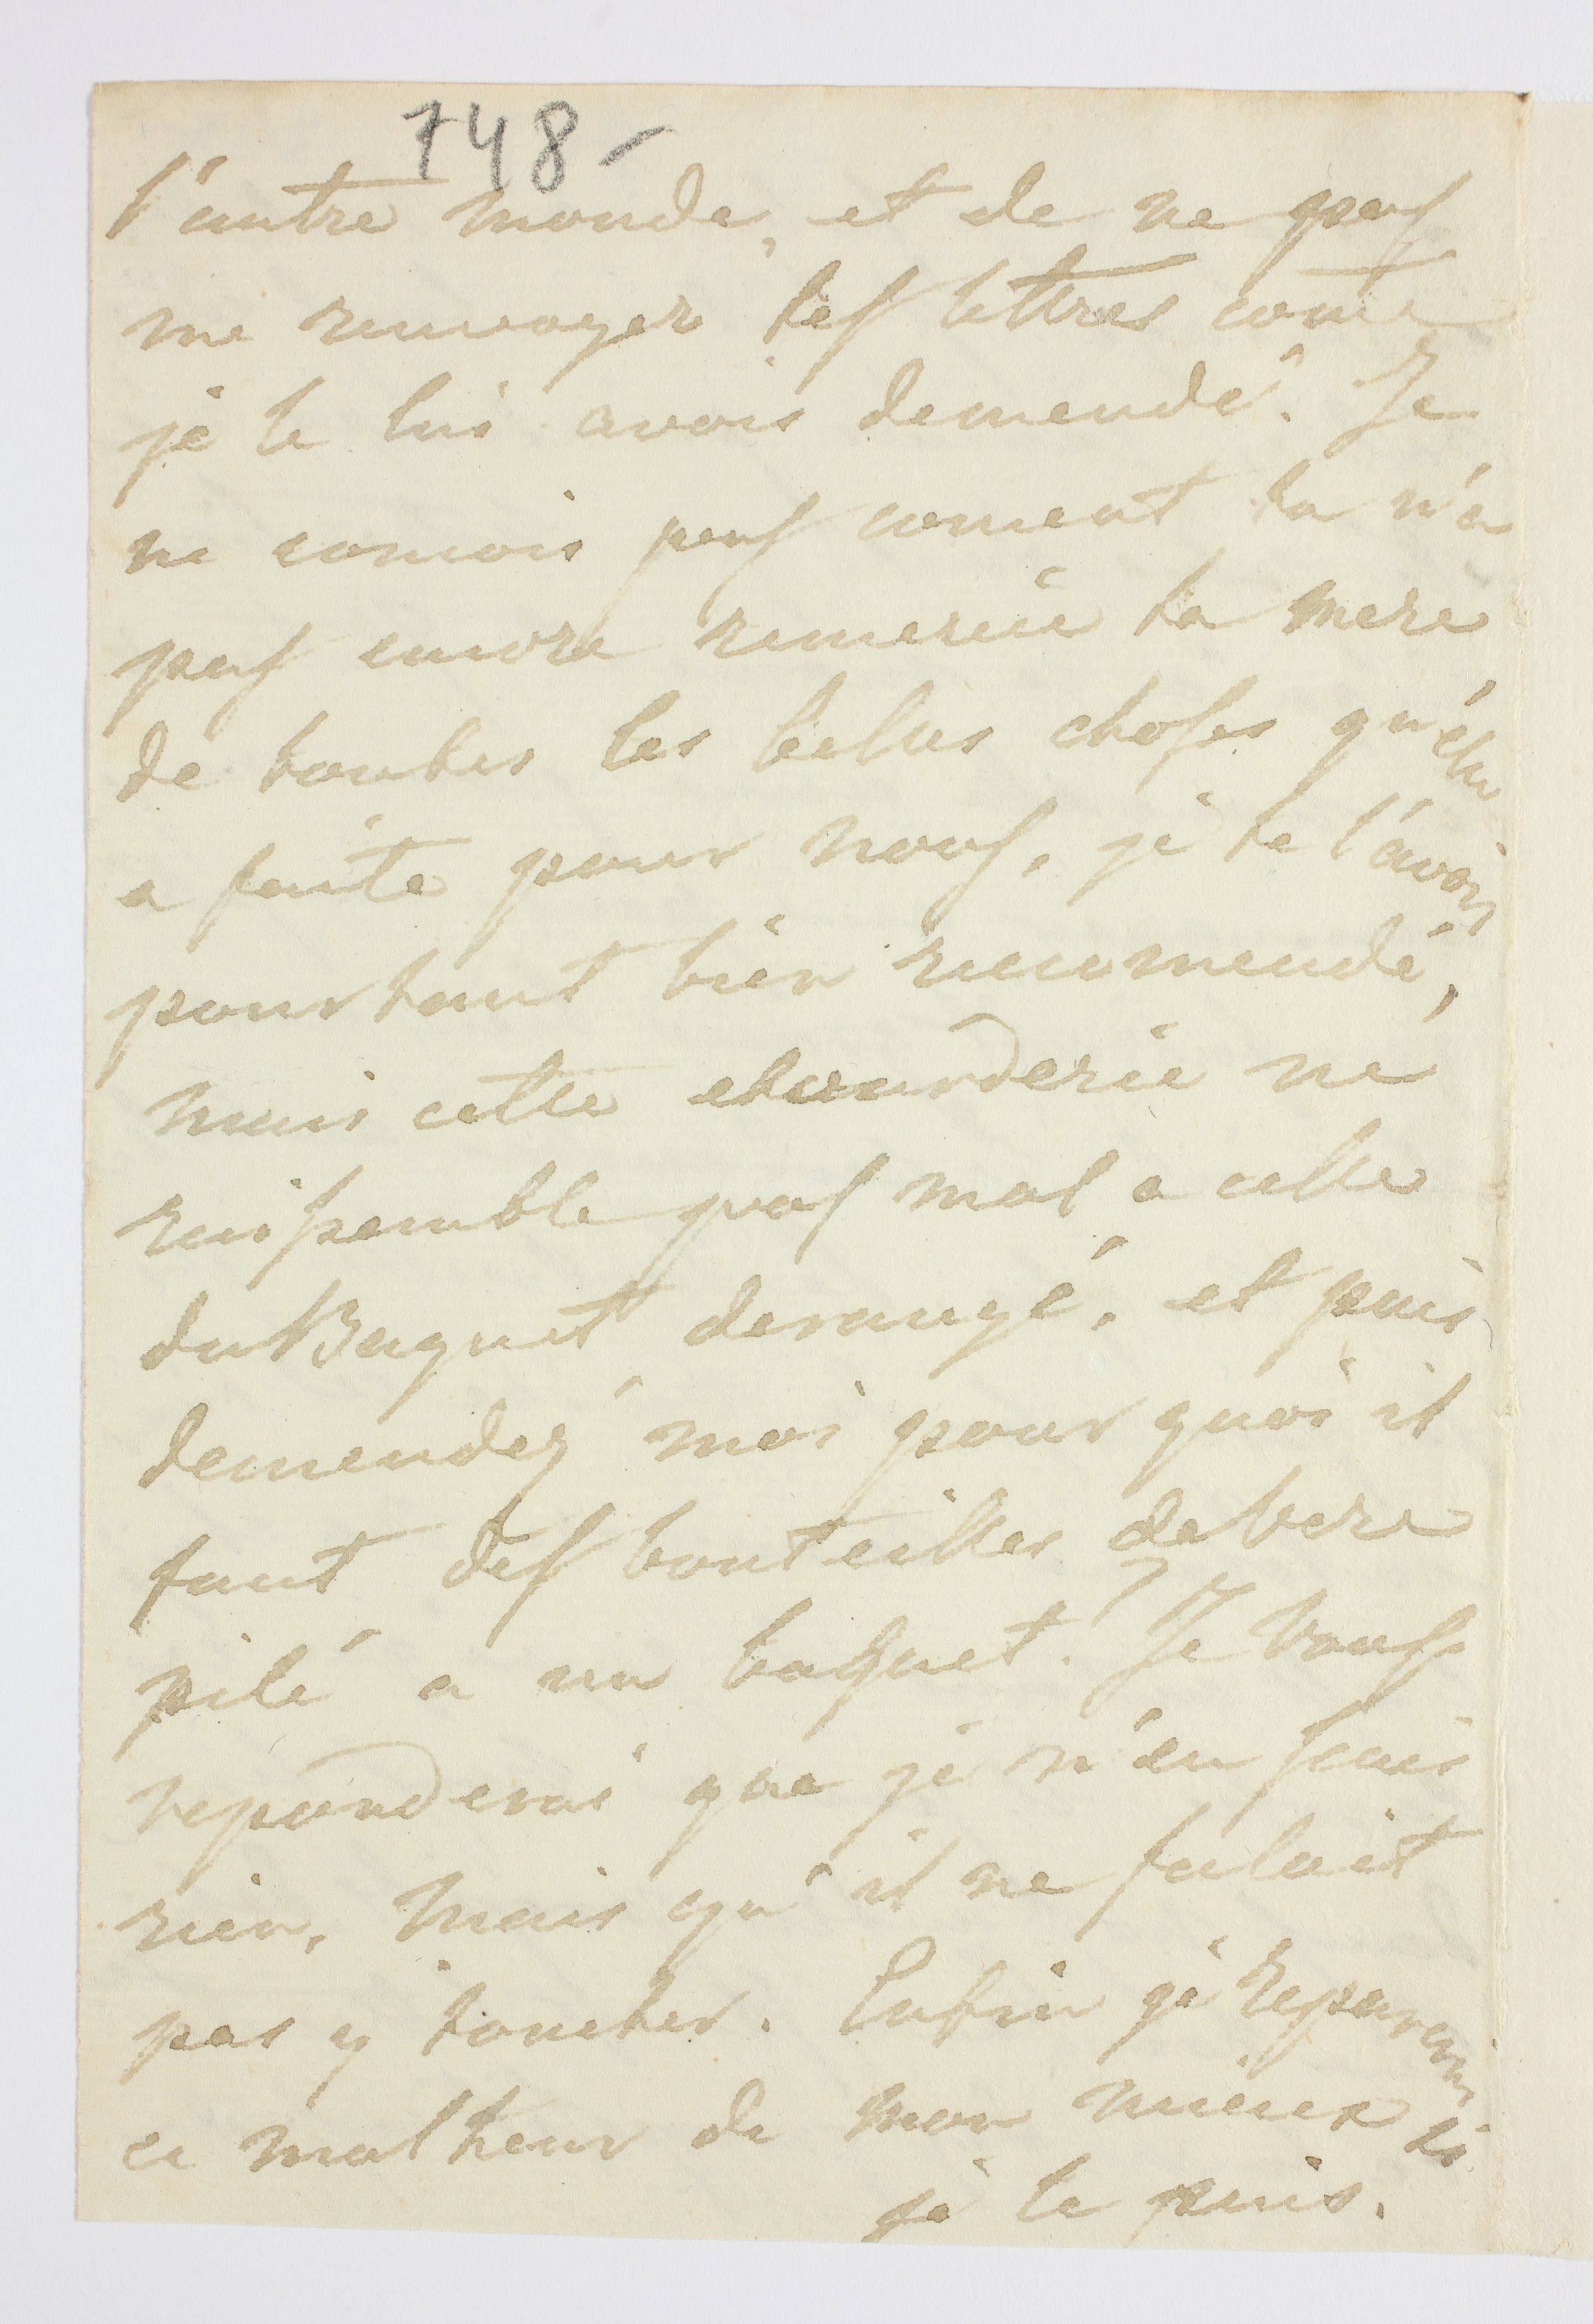 748-
l'autre monde, et de ne pas
me renvoyer tes lettres come
je le lui avois demendé. Je
ne concois pas coment tu n'a
pas encore remercie ta mere
de toutes les belles choses qu'elle
a faite pour nous, je te l'avois
pourtant bien recomendé,
mais cette etourderie ne
ressemble pas mal a celle
du Baquet derangé. et puis
demendez moi pour quoi il
faut des bouteilles de vere
pilé a un baquet. Je vous
reponderai que je n'en sais
rien, mais qu'il ne falait
pas y toucher. Enfin je reparerai
ce malheur de mon mieux si
je le puis.